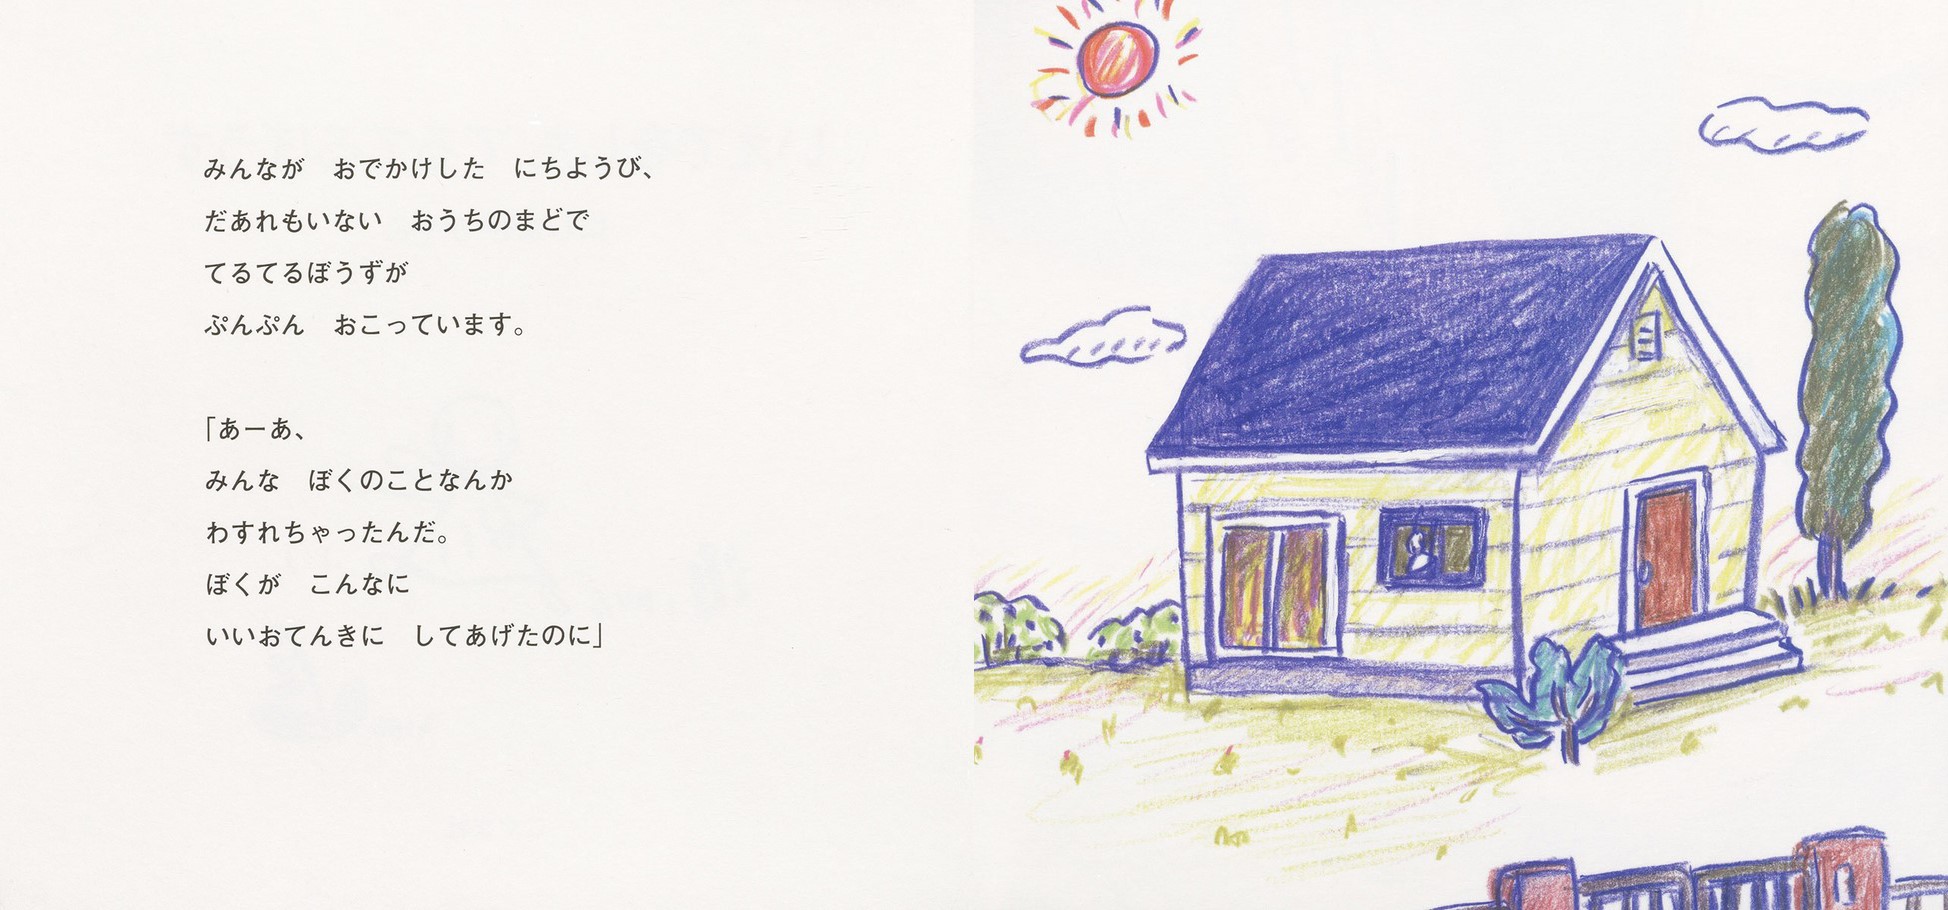 みんなが　おでかけした　にちようび、
だあれもいない　おうちのまどで
てるてるぼうずが
ぷんぷん　おこっています。
「あーあ、
みんな　ぼくのことなんか
わすれちゃったんだ。
ぼくが　こんなに
いいおてんきに　してあげたのに」